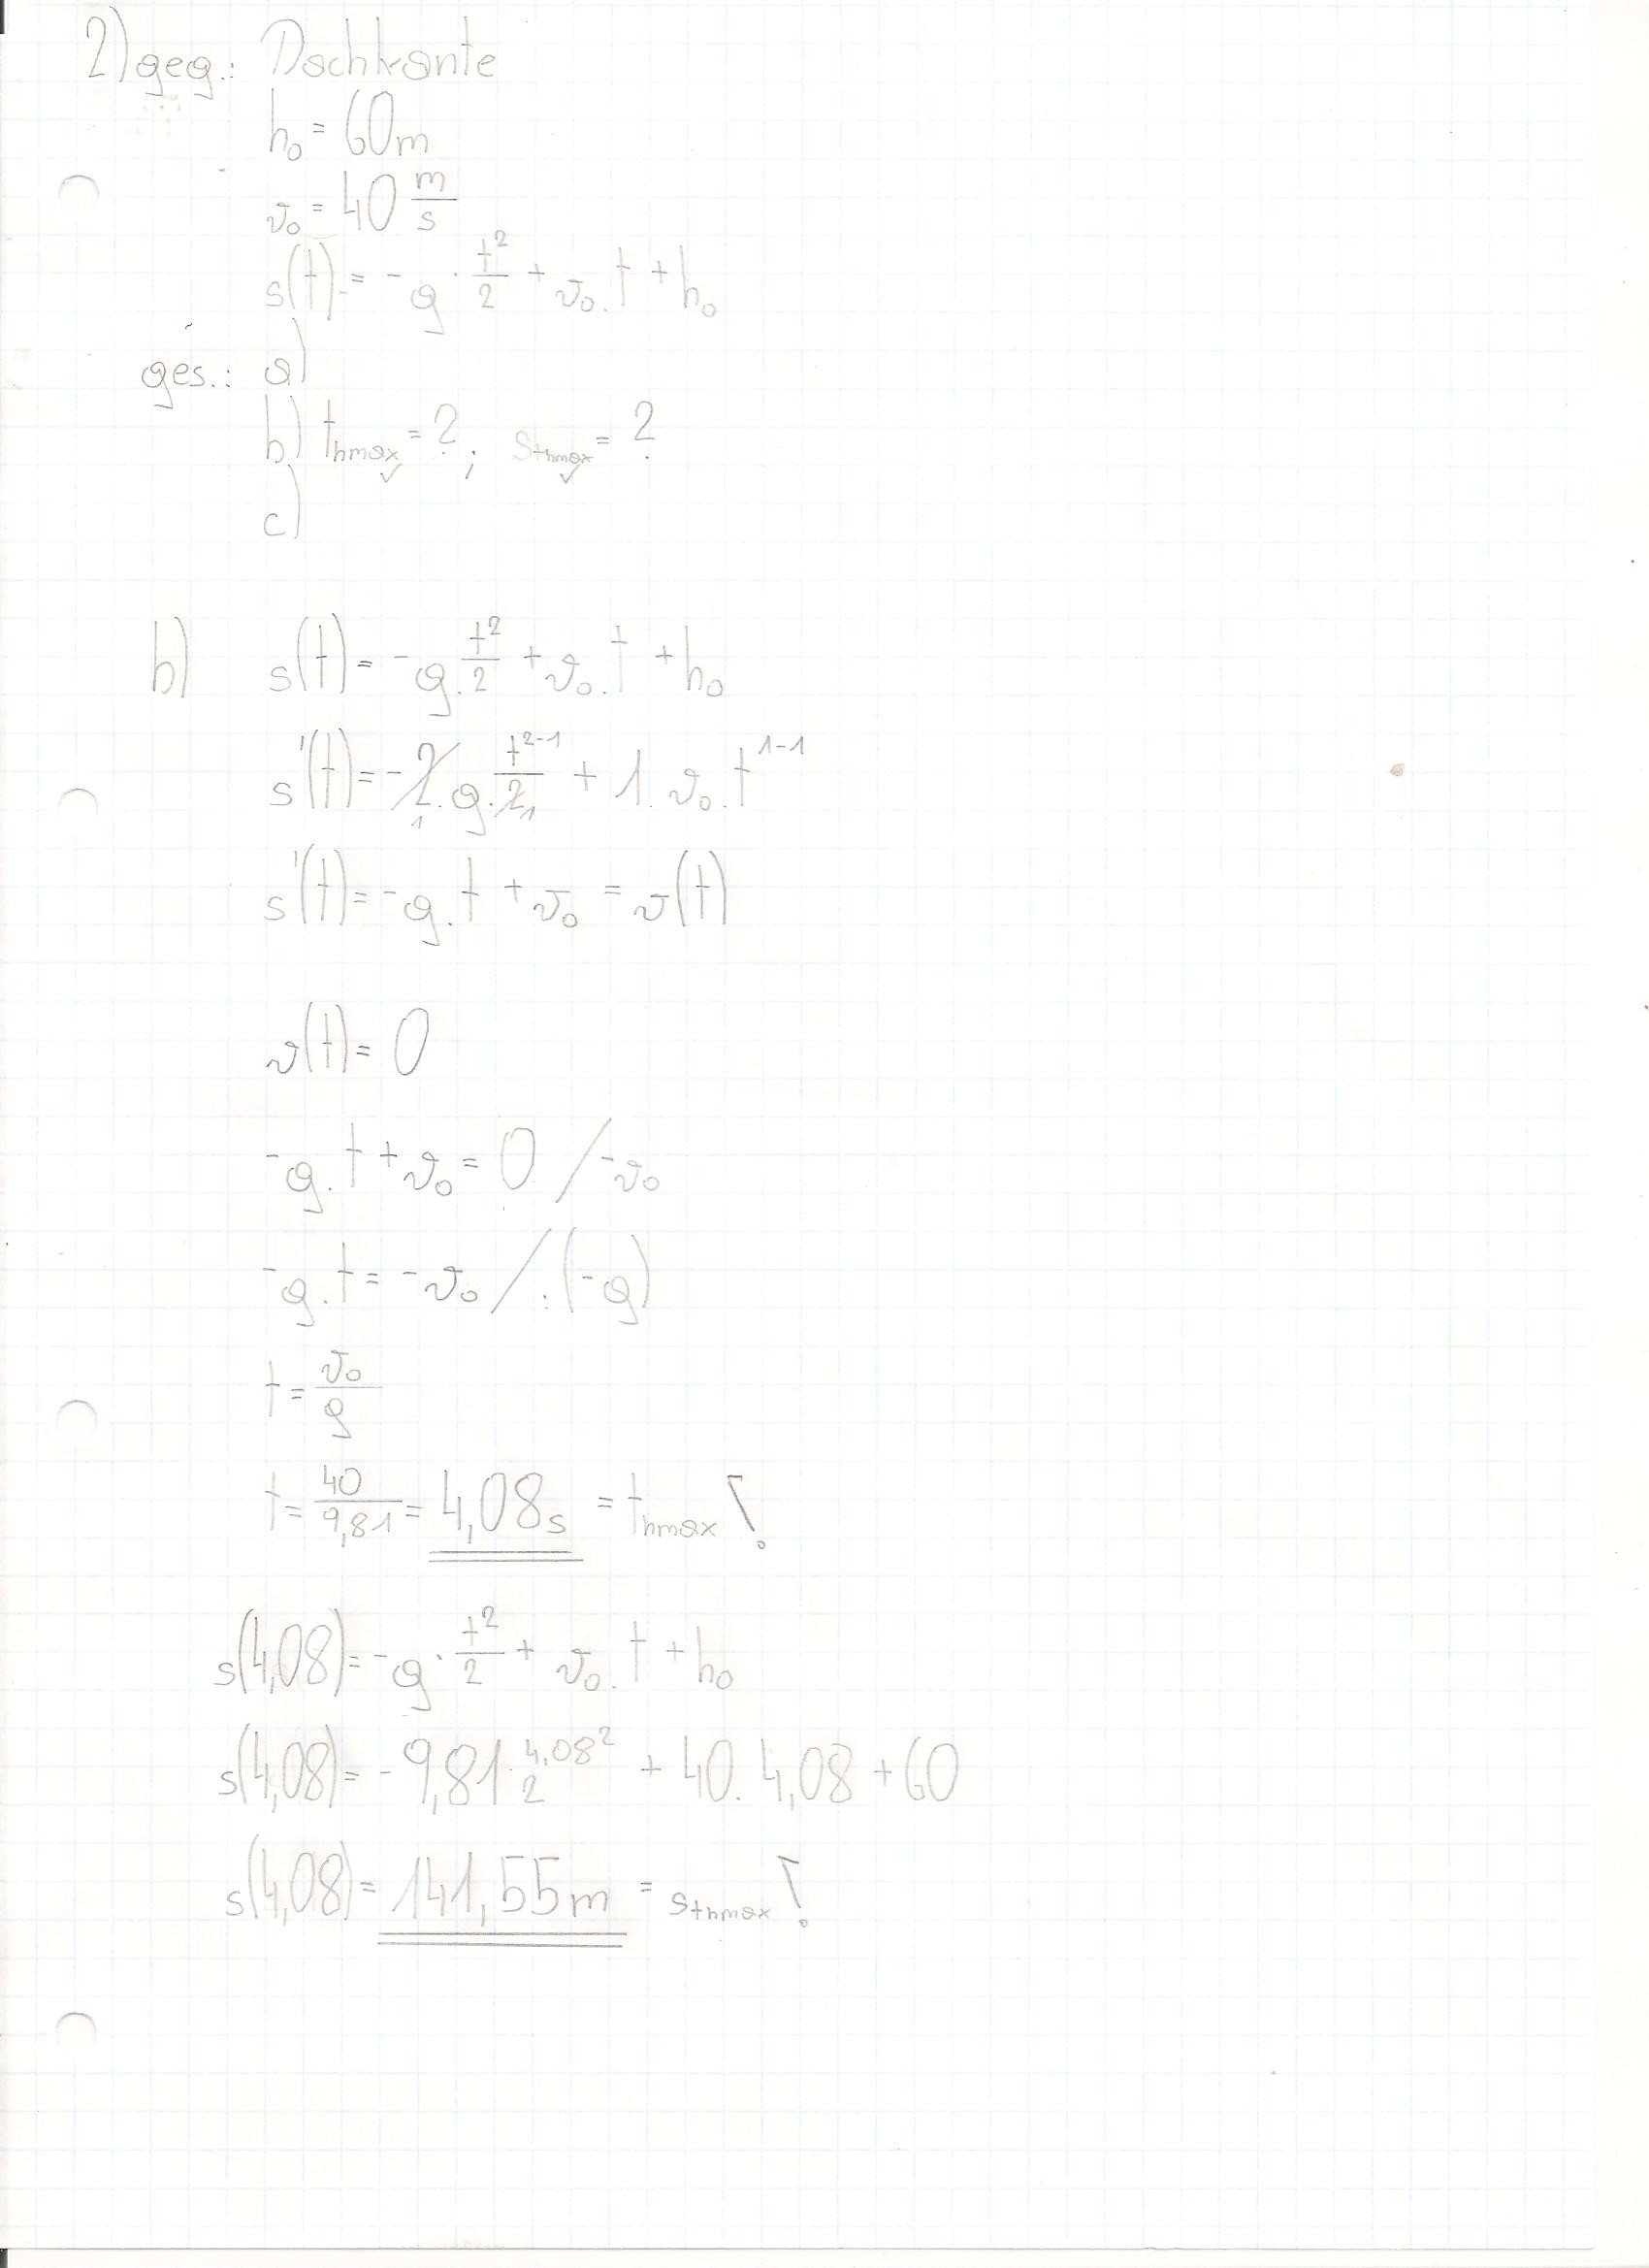 2) geg.: Dachkante
h₀ = 60m
v₀ = 40 m/s
s(t) = -g · t²/2 + v₀ . t + h₀
ges.: a)
b) thmax = ? ; sthmax = ?
c)
b) s(t) = -g . t²/2 + v₀ . t + h₀
s'(t) = -2 . g . t²⁻¹/2 + 1 . v₀ . t¹⁻¹
1 1
s'(t) = -g . t + v₀ = v(t)
v(t) = 0
-g . t + v₀ = 0 / -v₀
-g . t = -v₀ / : (-g)
t = v₀/g
t = 40/9,81 = 4,08s = thmax !
s(4,08) = -g · t²/2 + v₀ . t + h₀
s(4,08) = -9,81 · 4,08²/2 + 40 . 4,08 + 60
s(4,08) = 141,55m = sthmax !